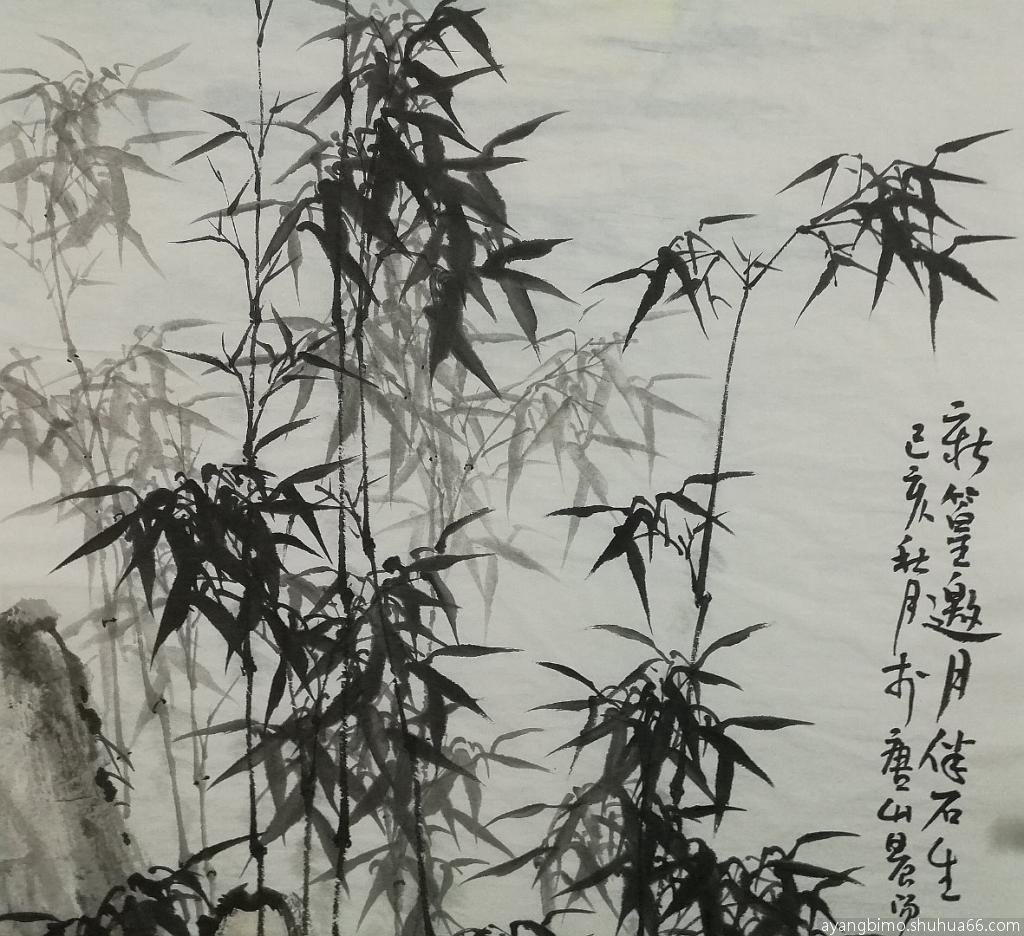 新篁邀月伴石生
己亥秋月於唐山晨
ayangbimo.shuhua66.com